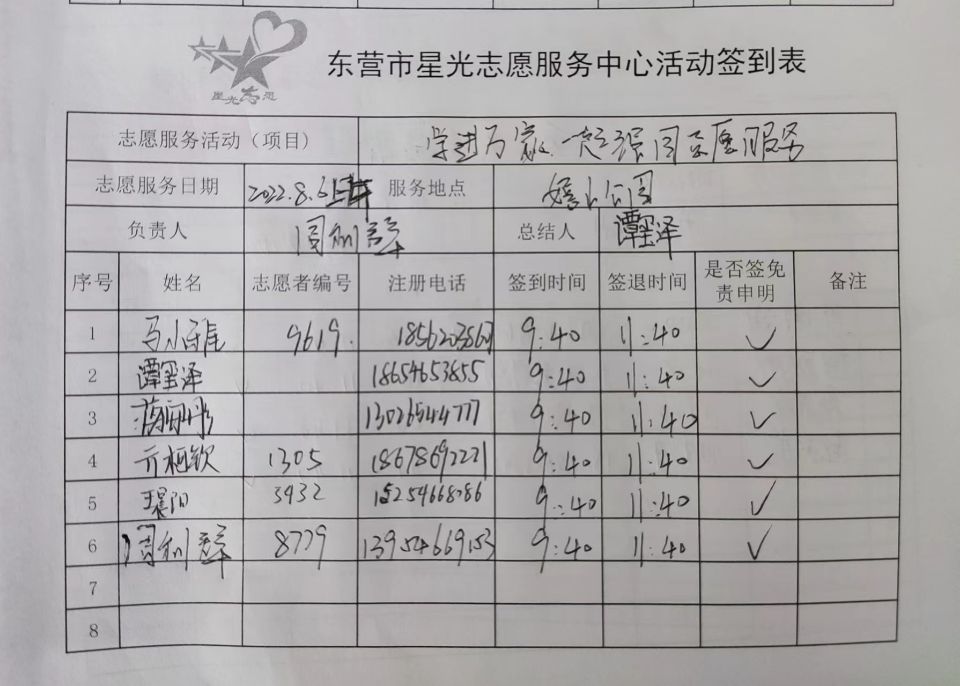 星光志愿
东营市星光志愿服务中心活动签到表
志愿服务活动（项目） 学进万家 一起强国志愿服务
志愿服务日期 2022.8.6上午 服务地点 公园
负责人 周利 总结人 谭罡泽
序号 姓名 志愿者编号 注册电话 签到时间 签退时间 是否签免责申明 备注
1 马小雅 9619. 9:40 11:40 ✓
2 谭罡泽 18654653855 9:40 11:40 ✓
3 13026544777 9:40 11:40 ✓
4 亓柯钦 1305 18678692221 9:40 11:40 ✓
5 3432 15254668086 9:40 11:40 ✓
6 周利 8779 13954669153 9:40 11:40 ✓
7
8